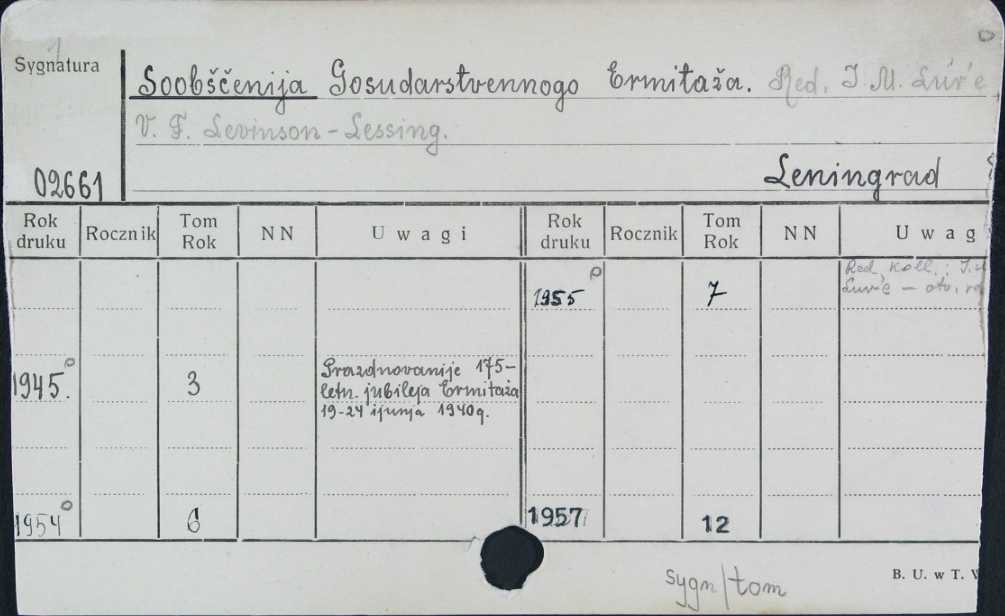 Sygnatura
Soobščenija Gosudarstvennogo Ermitaža. Red. I. M. Lur'e
V. F. Levinson-Lessing.
02661
Leningrad
Rok druku Rocznik Tom Rok NN Uwagi Rok druku Rocznik Tom Rok NN Uwag
Red. Koll.:
1955 7 Lur'e – otv.
1945. 3 Prazdnovanije 175-
letn. jubileja Ermitaža
19-24 ijunja 1940g.
1954 6 1957 12
sygn/tom
B. U. w T.